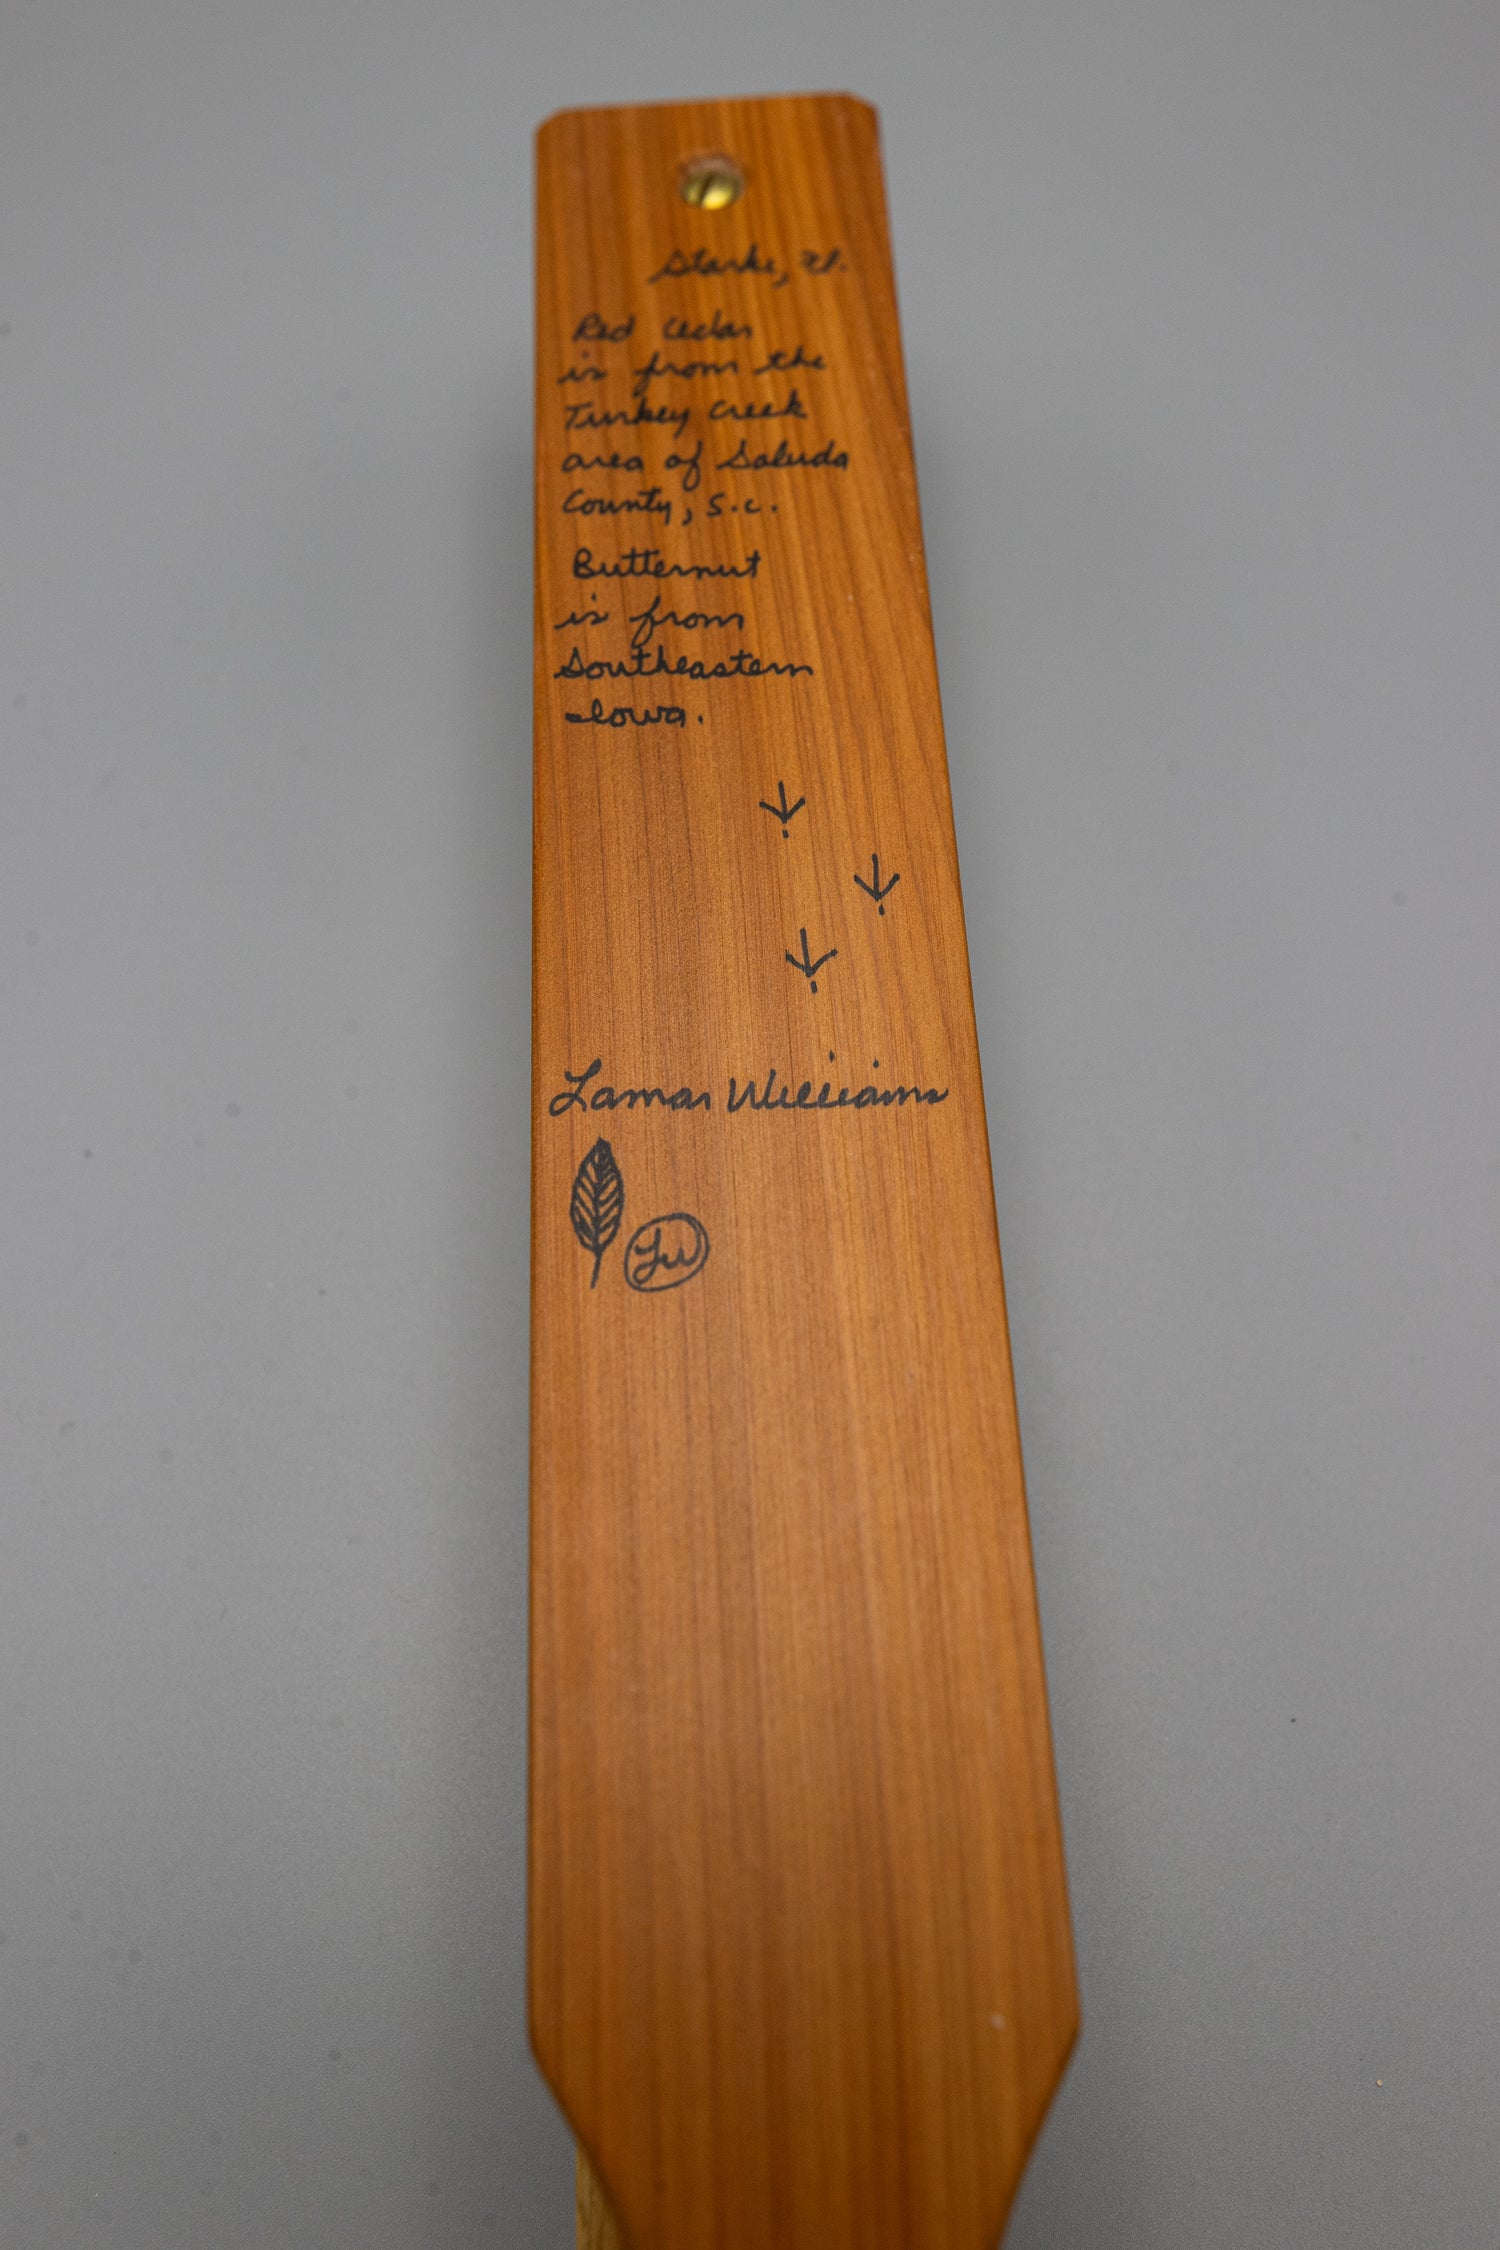 Starke, Fl.
Red Cedar
is from the
Turkey Creek
area of Saluda
County, S.C.
Butternut
is from
Southeastern
Iowa.
Lamar Williams
LW